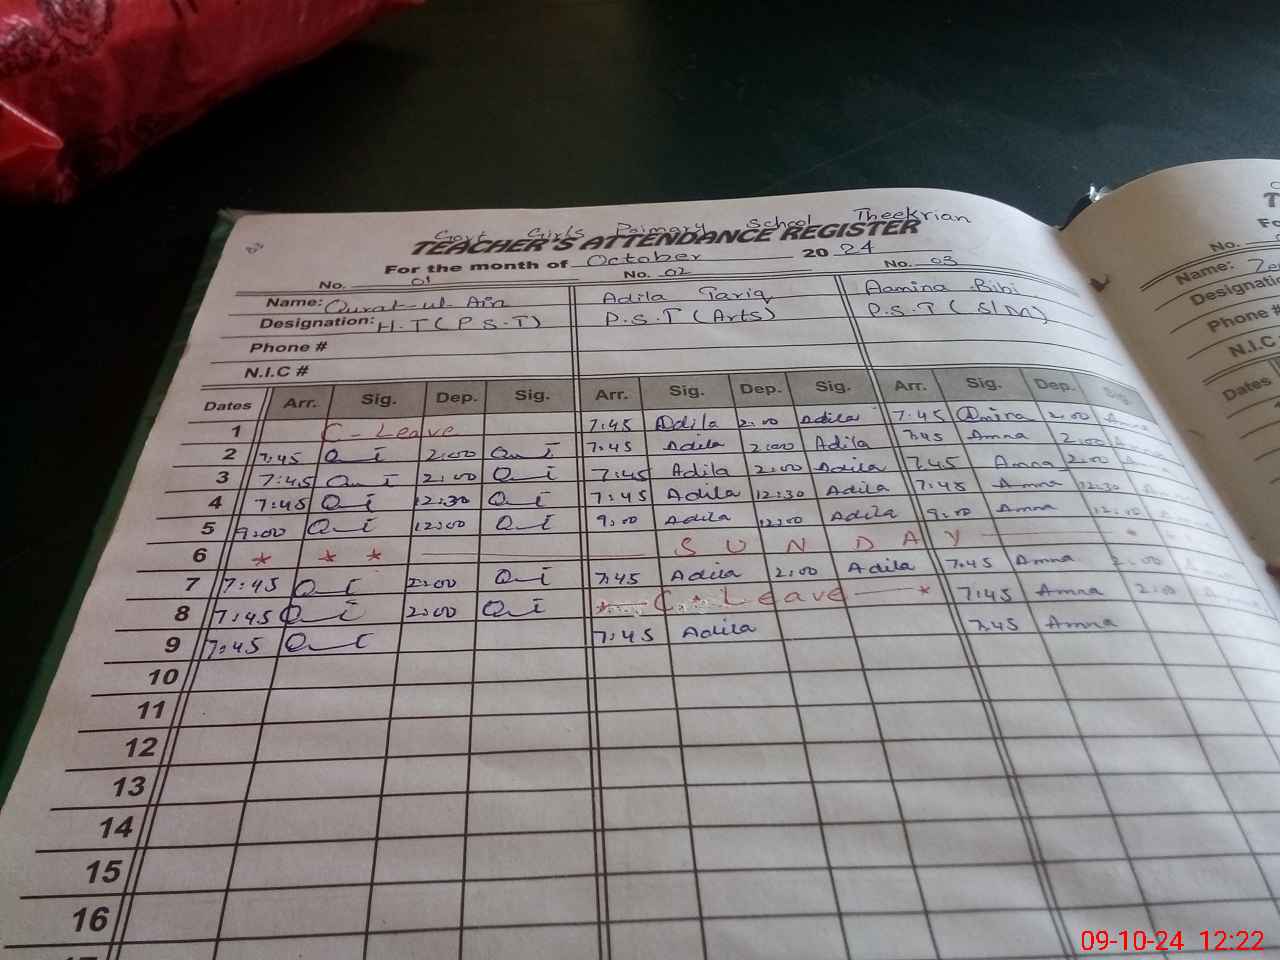 Govt Girls Primary School Theekrian
TEACHER'S ATTENDANCE REGISTER
For the month of October 20 24
No. 01 No. 02 No. 03
Name: Qurat-ul-Ain Adila Tariq Aamina Bibi
Designation: H.T (P.S.T) P.S.T (Arts) P.S.T (S/M)
Phone #
N.I.C #
Dates Arr. Sig. Dep. Sig. Arr. Sig. Dep. Sig. Arr. Sig. Dep. Sig.
1 C-Leave 7:45 Adila 2:00 Adila 7:45 Amina 2:00 Amna
2 7:45 2:00 7:45 Adila 2:00 Adila 7:45 Amna 2:00
3 7:45 2:00 7:45 Adila 2:00 Adila 7:45 Amna 2:00
4 7:45 12:30 7:45 Adila 12:30 Adila 7:45 Amna 12:30
5 9:00 12:00 9:00 Adila 12:00 Adila 9:00 Amna 12:00
6 * * * SUNDAY
7 7:45 2:00 7:45 Adila 2:00 Adila 7:45 Amna 2:00
8 7:45 2:00 * C-Leave * 7:45 Amna 2:00
9 7:45 7:45 Adila 7:45 Amna
10
11
12
13
14
15
16
No.
Name:
Designation
Phone #
N.I.C #
Dates
09-10-24 12:22